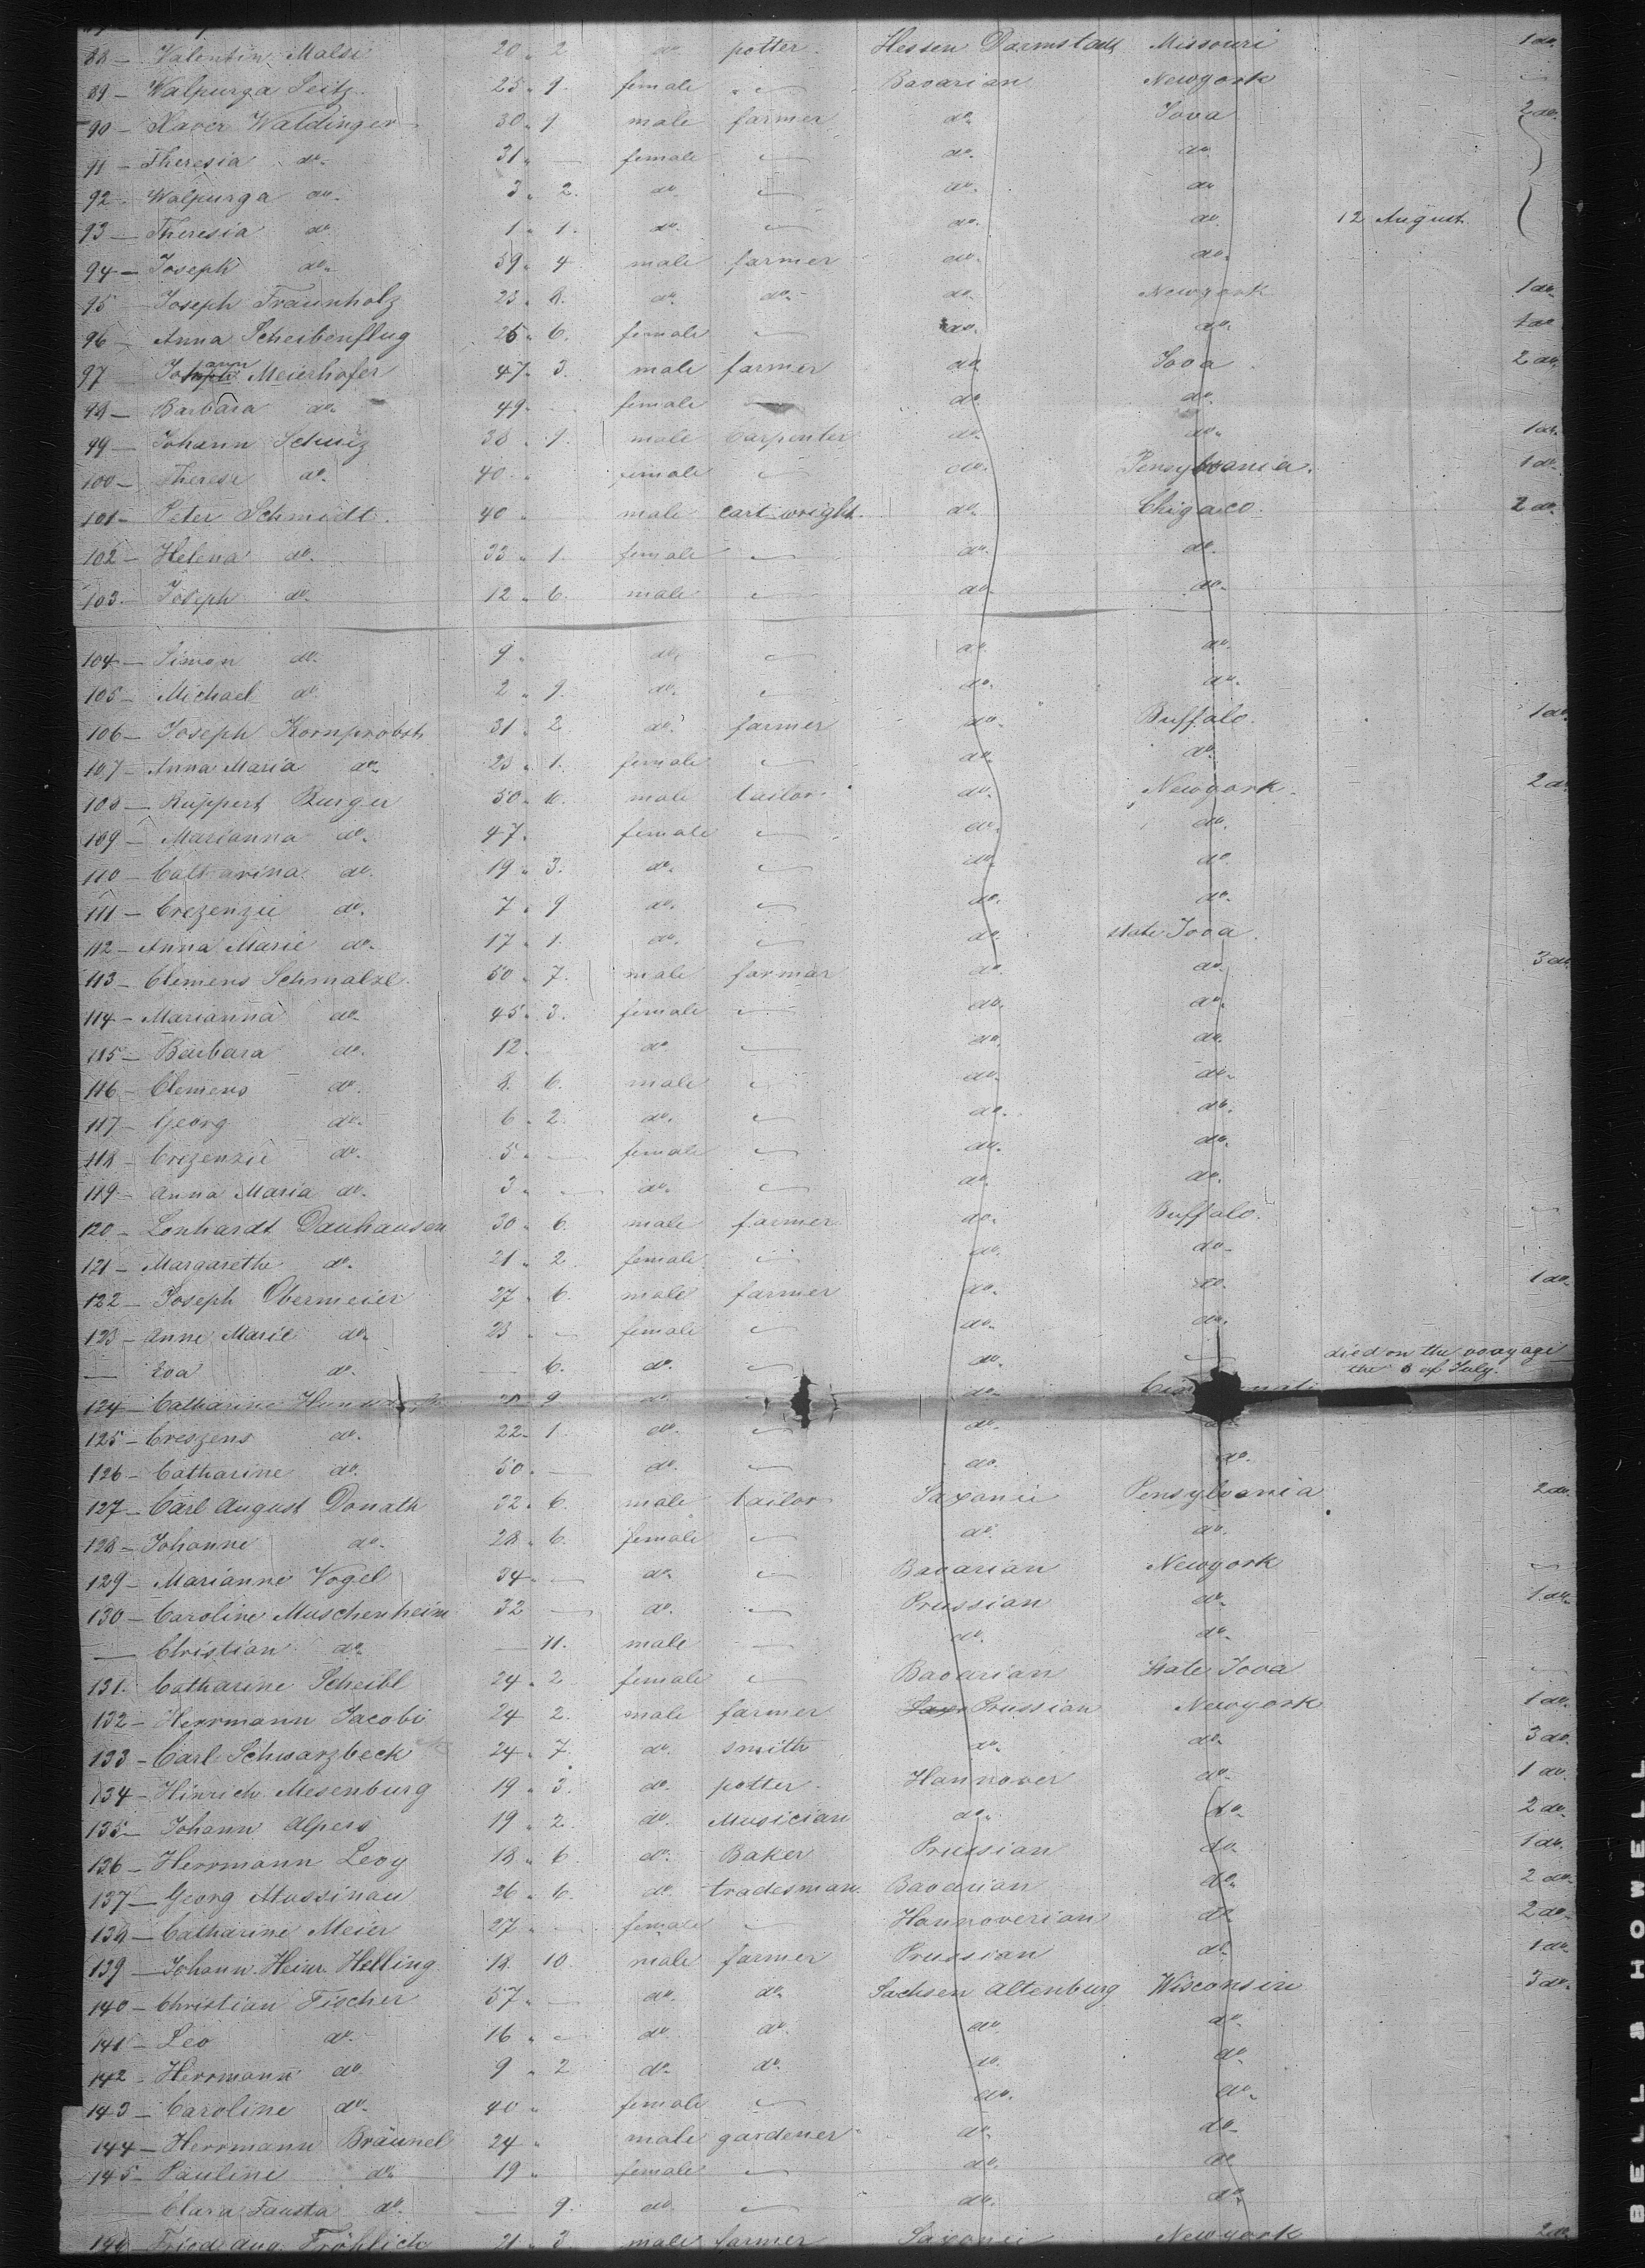 88 — Valentin Malsi 20 " 2 do. potter. Hessen Darmstadt Missouri 1 do.
89 — Walpurga Seitz 25 " 9. female " Bavarian Newyork
90 — Xaver Waldinger 30 " 9 male farmer do. Iova 2 do.
91 — Theresia do. 31 " — female do. do.
92 — Walpurga do. 3 " 2. do. do. do.
93 — Theresia do. 1 " 1. do. do. do. 12 August
94 — Joseph do. 59 " 4 male farmer do. do.
95 Joseph Fraunholz 23 " 8. do. do. do. Newyork 1 do.
96 — Anna Scheibenflug 26 " 6. female do. do. 1 do.
97 Johann Meierhofer 47 " 3. male farmer do. Iova 2 do.
98 — Barbara do. 49 " — female do. do.
99 — Johann Schuiz 38 " 1. male Carpenter do. do. 1 do.
100 — Therese do. 40 " female do. Pensylvania. 1 do.
101 — Peter Schmidt. 40 " male cart wright. do. Chigaco. 2 do.
102 — Helena do. 33 " 1. female do. do.
103. Joseph do. 12 " 6. male do. do.
104 — Simon do. 9 " do. do. do.
105 — Michael do. 2 " 9. do. do. do.
106 — Joseph Kornprobst 31 " 2 do. farmer do. Buffalo. 1 do.
107 — Anna Maria do. 23 " 1. female do. do.
108 — Ruppert Burger 50 " 6. male tailor do. Newyork. 2 do.
109 — Marianna do. 47 " female do. do.
110 — Catharina do. 19 " 3. do. do. do.
111 — Crezenzie do. 7 " 9 do. do. do.
112 — Anna Marie do. 17 " 1. do. do. state Iova.
113 — Clemens Schmalzl. 50 " 7. male farmar do. do. 3 do.
114 — Marianna do. 45 " 3. female do. do.
115 — Barbara do. 12 " do. do. do.
116 — Clemens do. 8. 6. male do. do.
117 — Georg do. 6 " 2. do. do. do.
118 — Crezenzie do. 5 " — female do. do.
119 — Anna Maria do. 3 " — do. do. do.
120 — Lonhardt Dauhausen 30 " 6. male farmer do. Buffalo.
121 — Margarethe do. 21 " 2 female do. do.
122 — Joseph Obermeier 27 " 6. male farmer do. do. 1 do.
123 — Anne Marie do. 23 " — female do. do.
— Eva do. — 6. do. do. — died on the voyage
the 8 of July.
124 — Catharine 9 do. do.
125 — Creszens do. 22 " 1. do. do. do.
126 — Catharine do. 50 " — do. do. do.
127 — Carl August Donath 32 " 6. male tailor Saxonie Pensylvania 2 do.
128 — Johanne do. 28 " 6. female do. do.
129 — Marianne Vogel 34 " — do. Bavarian Newyork
130 — Caroline Muschenheim 32 — do. Prussian do. 1 do.
— Christian do. — 11. male do. do.
131. Catharine Scheibl 24 " 2 female Bavarian State Iova
132 — Herrmann Jacobi 24 2. male farmer Prussian Newyork 1 do.
133 — Carl Schwarzbeck 24 " 7. do. smith do. do. 3 do.
134 — Hinrich Mesenburg 19 " 3. do. potter. Hannover do. 1 do.
135 — Johann Alpers 19 " 2. do. Musician do. do. 2 do.
136 — Herrmann Levy 18 " 6. do. Baker Prussian do. 1 do.
137 — Georg Mussinau 26 " 6. do. tradesman. Bavarian do. 2 do.
138 — Catharine Meier 27 " — female Hannoverian do. 2 do.
139 — Johann Heinr. Helling 18 10. male farmer Prussian do. 1 do.
140 — Christian Fischer 57 " — do. do. Sachsen Altenburg Wisconsin 3 do.
141 — Leo do. 16 " — do. do. do. do.
142 — Herrmann do. 9 " 2 do. do. do. do.
143 — Caroline do. 40 " female do. do.
144 — Herrmann Bräunel 24 " male gardener do. do.
145 — Pauline do. 19 " female do. do.
— Clara Fausta do. — 9. do. do. do.
146 Fried. Aug. Fröhlich 21 " 3 male farmer Saxonie Newyork 2 do.
BELL & HOWELL